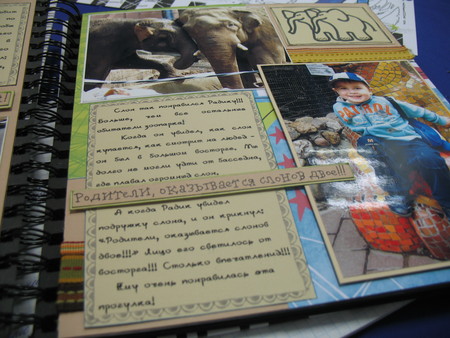 Слон так понравился Радику!!!
Больше, чем все остальные
обитатели зоопарка!
Когда он увидел, как слон
купается, как смотрит на людей -
он был в большом восторге. Мы
долго не могли уйти от бассейна,
где плавал огромный слон,
Родители, оказывается слонов двое!!!
А когда Радик увидел
подружку слона, и он крикнул:
«Родители, оказывается слонов
двое!!!» Лицо его светилось от
восторга!!! Столько впечатлений!!!
Ему очень понравилась эта
прогулка!